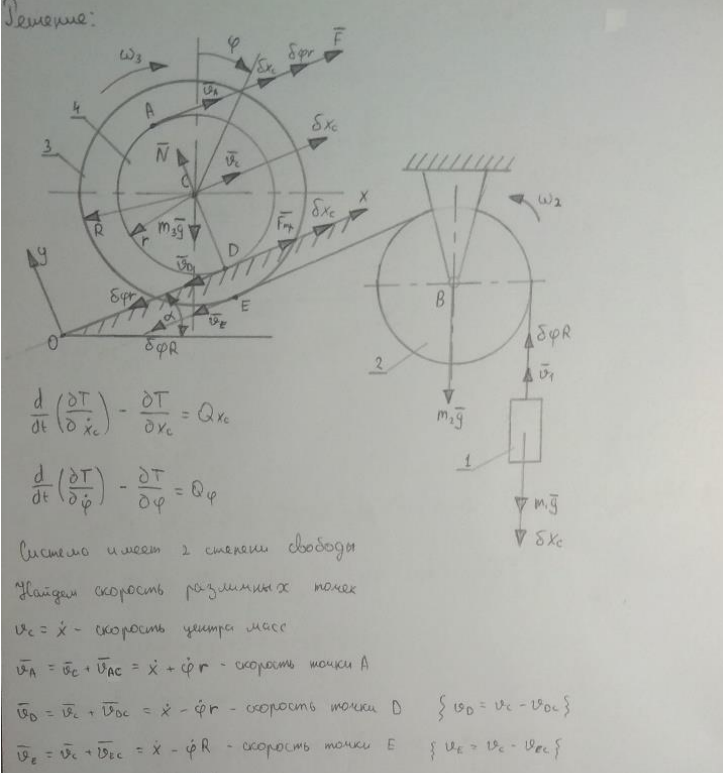 Решение:
ω₃
φ
δx_c
δφr
F̄
4
A
v̄_A
3
N̄
C
v̄_c
δx_c
R
r
m₃ḡ
F̄_тр
δx_c
x
ω₂
y
D
v̄_D
δφr
α
E
v̄_E
O
δφR
B
2
δφR
v̄₁
m₂ḡ
1
m₁ḡ
δx_c
d/dt (∂T/∂ẋ_c) - ∂T/∂x_c = Q_xc
d/dt (∂T/∂φ̇) - ∂T/∂φ = Q_φ
Система имеет 2 степени свободы
Найдем скорость различных точек
v_c = ẋ - скорость центра масс
v̄_A = v̄_c + v̄_AC = ẋ + φ̇r - скорость точки A
v̄_D = v̄_c + v̄_DC = ẋ - φ̇r - скорость точки D { v_D = v_c - v_DC }
v̄_E = v̄_c + v̄_EC = ẋ - φ̇R - скорость точки E { v_E = v_c - v_EC }